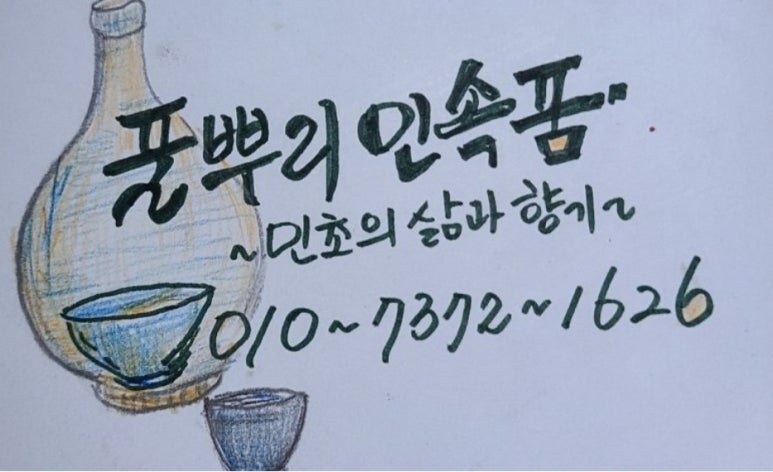 풀뿌리 민속품"
~민초의 삶과 향기~
010~7372~1626